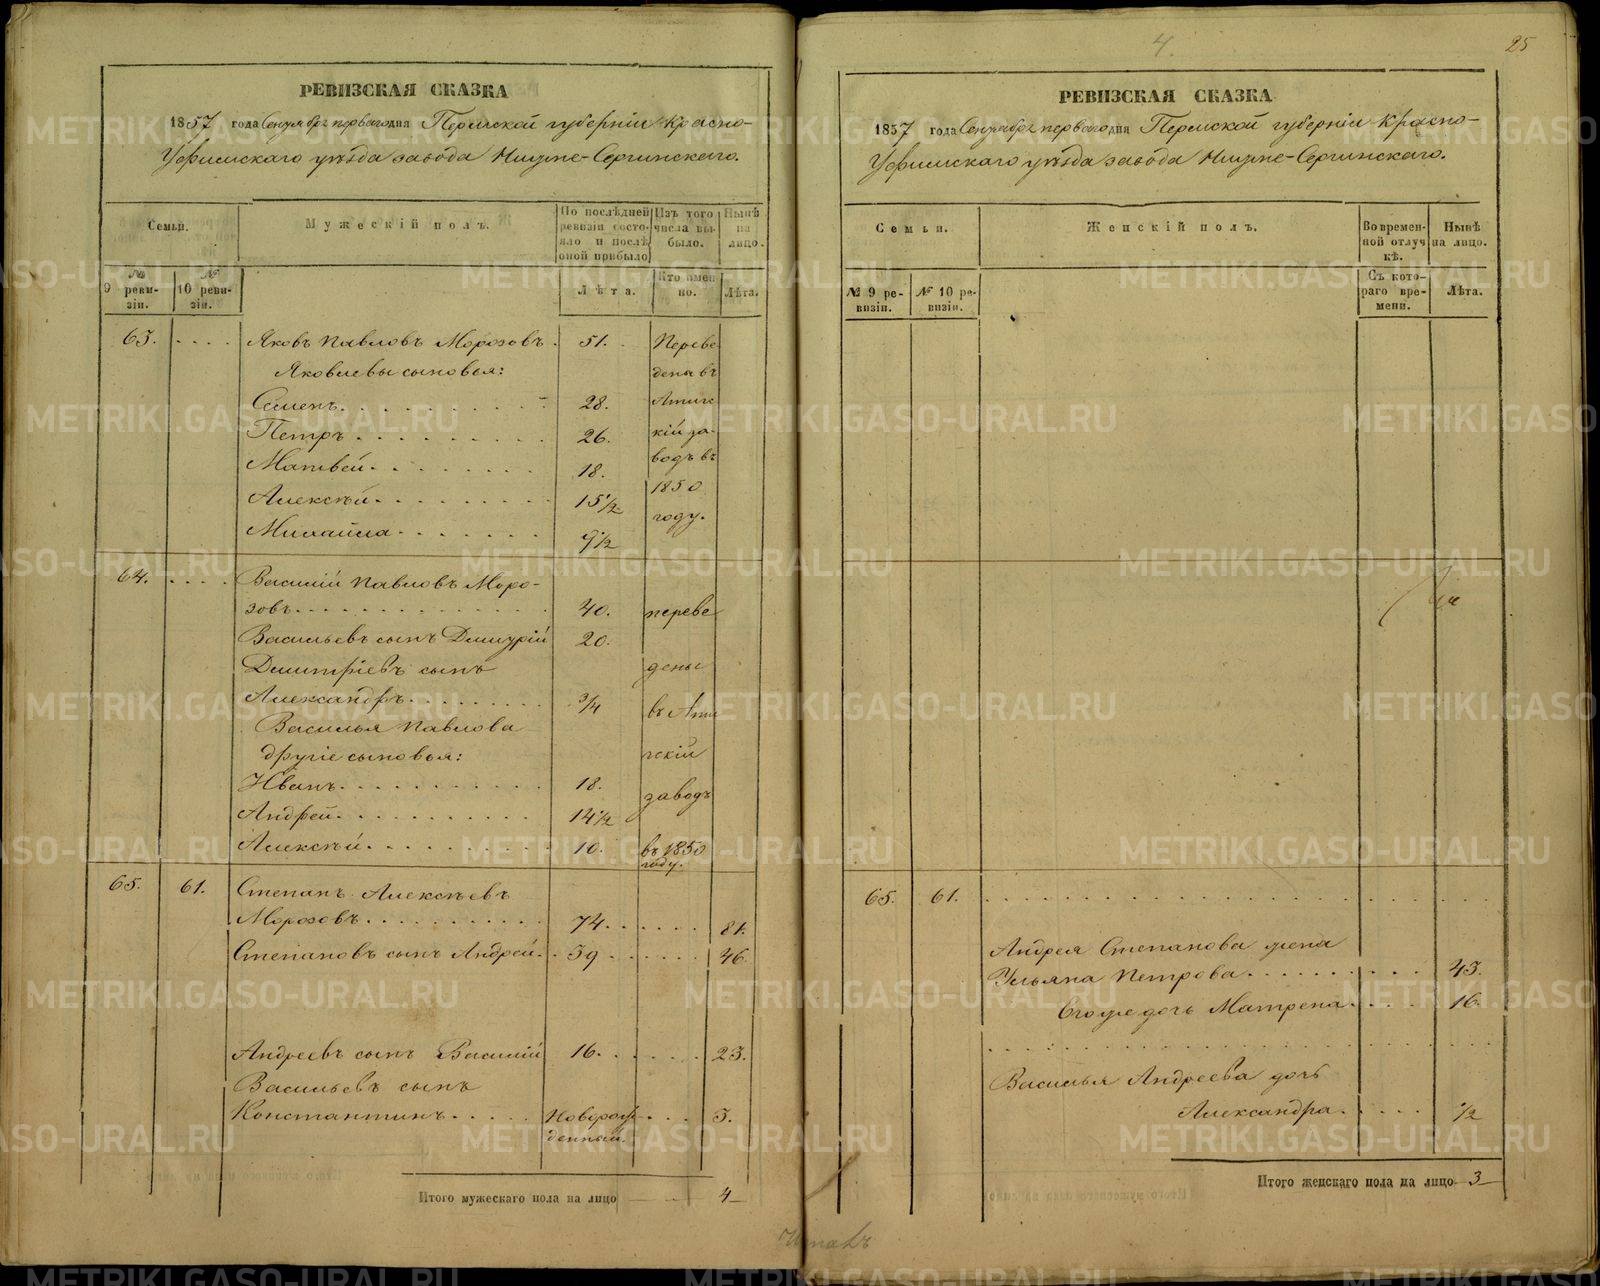 РЕВИЗСКАЯ СКАЗКА
1857 года Сентября перваго дня Пермской губерніи Красно-
Уфимскаго уѣзда завода Нижне-Сергинскаго.
Семьи.
Мужескій полъ.
По послѣдней ревизіи состояло и послѣ оной прибыло
Изъ того числа выбыло.
Нынѣ на лицо.
№ 9 ревизіи.
№ 10 ревизіи.
Лѣта.
Кто именно.
Лѣта.
63. . . . . Яковъ Павловъ Морозовъ. 51. Переве
Яковлевы сыновья: дены въ
Семенъ. . . . . . . . . . 28. Атиг
Петръ. . . . . . . . . . 26. скій за-
Матвей. . . . . . . . . 18. водъ въ
Алексѣй. . . . . . . . . 15½ 1850
Михайла. . . . . . . . 9½ году.
64. . . . . Василій Павловъ Моро-
зовъ. . . . . . . . . . . . 40. переве
Васильевъ сынъ Дмитрій 20.
Дмитріевъ сынъ дены
Александръ. . . . . . . . 3/4 въ Ати
Василья Павлова
другіе сыновья: гскій
Иванъ. . . . . . . . . . . 18. заводъ
Андрей. . . . . . . . . . 14½
Алексѣй. . . . . . . . . . 10. въ 1850
году.
65. 61. Степанъ Алексѣевъ
Морозовъ. . . . . . . . . 74. . . . . . 81.
Степановъ сынъ Андрей. . 39. . . . . . 46.
Андреевъ сынъ Василій 16. . . . . . 23.
Васильевъ сынъ
Константинъ. . . . . Новорож- . . . 3.
денный.
Итого мужескаго пола на лицо 4
4.
25
РЕВИЗСКАЯ СКАЗКА
1857 года Сентября перваго дня Пермской губерніи Красно-
Уфимскаго уѣзда завода Нижне-Сергинскаго.
Семьи.
Женскій полъ.
Во временной отлучкѣ.
Нынѣ на лицо.
№ 9 ревизіи.
№ 10 ревизіи.
Съ котораго времени.
Лѣта.
65. 61. . . . . . . . . . . . . . . . .
Андрея Степанова жена
Ульяна Петрова. . . . . . . . . . 43.
Его же дочь Матрена. . . . . 16.
Василья Андреева дочь
Александра. . . . . ½
Итого женскаго пола на лицо 3
METRIKI.GASO-URAL.RU